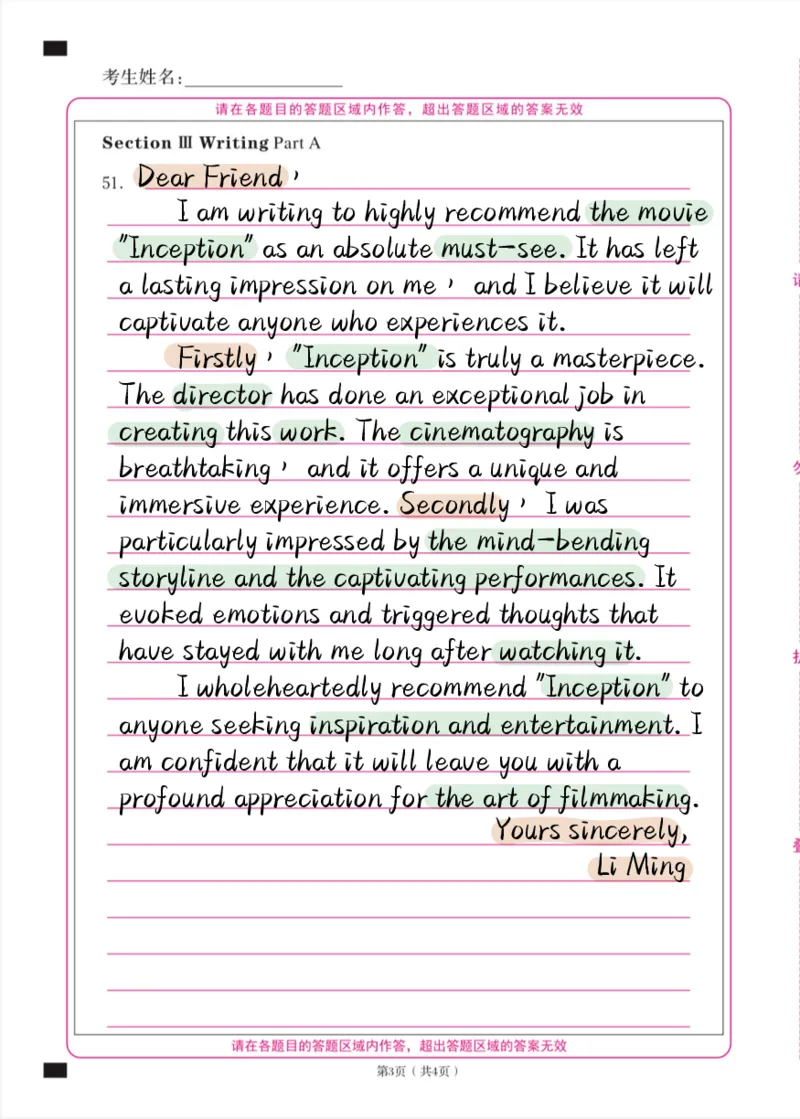 考生姓名:
请在各题目的答题区域内作答，超出答题区域的答案无效
Section Ⅲ Writing Part A
51. Dear Friend,
I am writing to highly recommend the movie
"Inception" as an absolute must-see. It has left
a lasting impression on me, and I believe it will
captivate anyone who experiences it.
Firstly, "Inception" is truly a masterpiece.
The director has done an exceptional job in
creating this work. The cinematography is
breathtaking, and it offers a unique and
immersive experience. Secondly, I was
particularly impressed by the mind-bending
storyline and the captivating performances. It
evoked emotions and triggered thoughts that
have stayed with me long after watching it.
I wholeheartedly recommend "Inception" to
anyone seeking inspiration and entertainment. I
am confident that it will leave you with a
profound appreciation for the art of filmmaking.
Yours sincerely,
Li Ming
请在各题目的答题区域内作答，超出答题区域的答案无效
第3页（共4页）